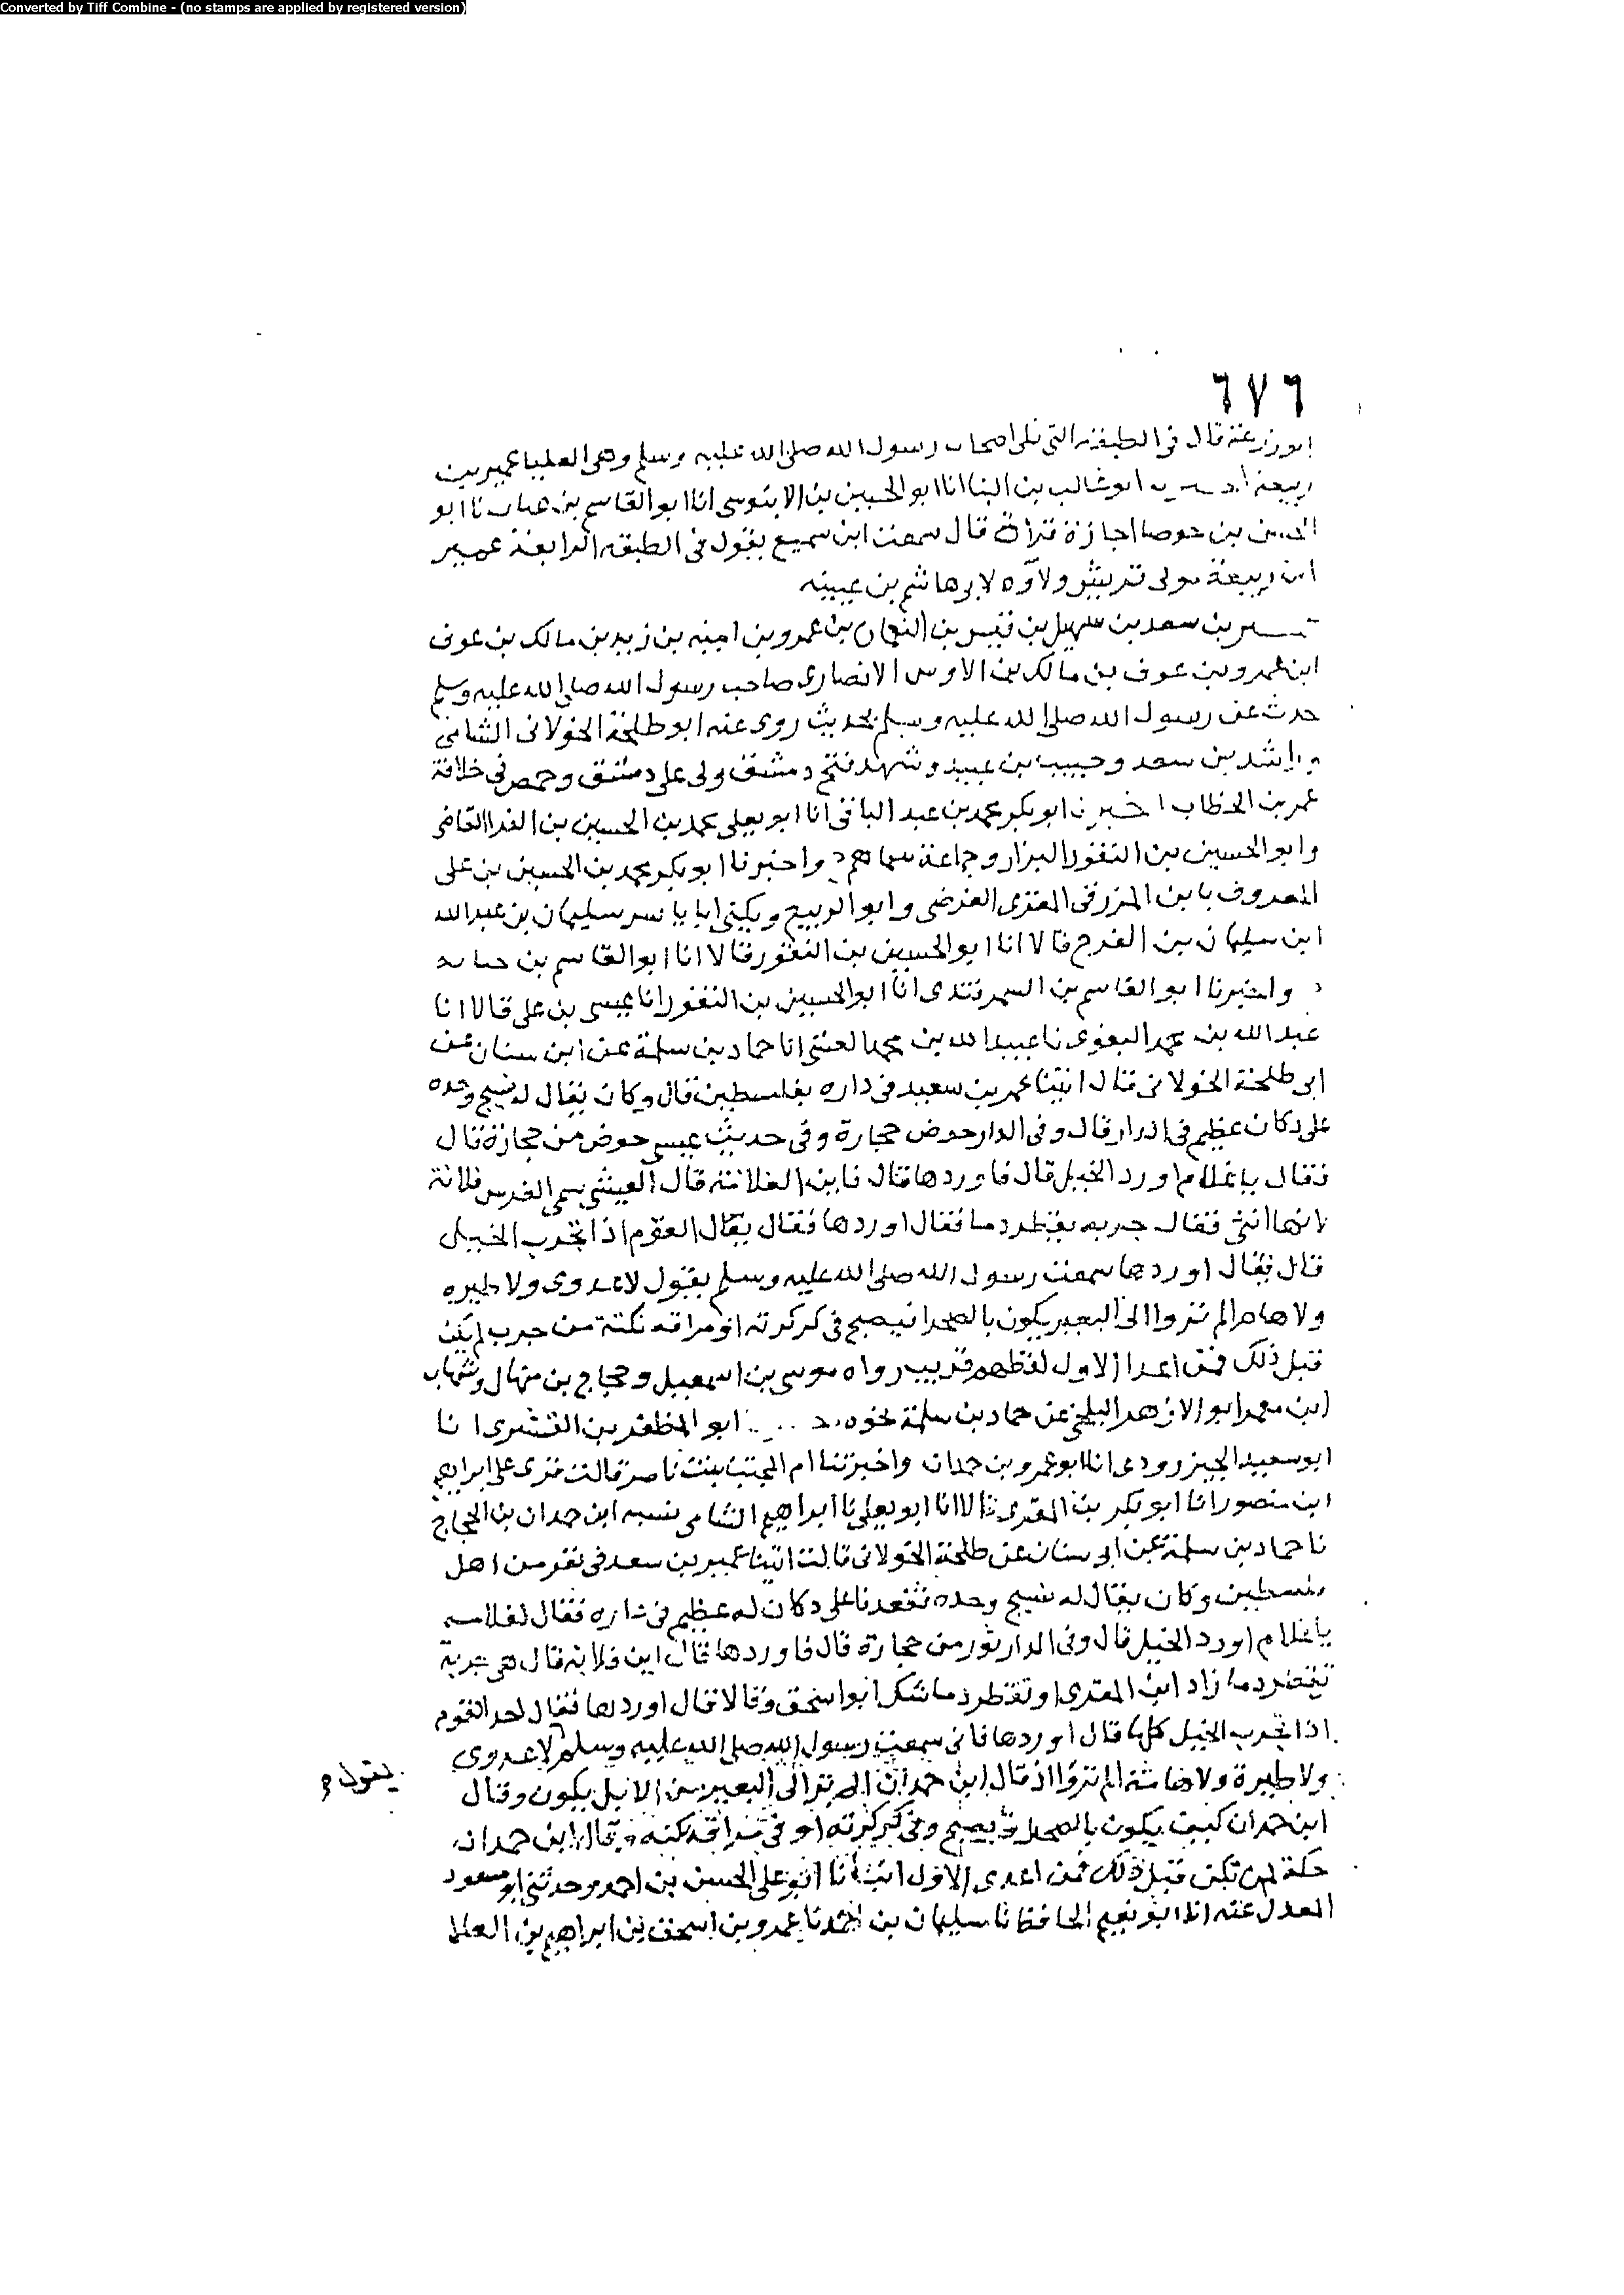 Converted by Tiff Combine - (no stamps are applied by registered version)
٦٧٦
ابو زرعة قال في الطبقة التي تلي اصحاب رسول الله صلى الله عليه وسلم وهي العليا عمير بن
ربيعة ابو غالب بن البنا انا ابو الحسين بن الابنوسي انا ابو القاسم بن عتاب نا ابو
الحسن بن جوصا اجازة قراة قال سمعت ابن سميع يقول في الطبقة الرابعة عمير
ابن ربيعة مولى قريش ولاوه لابي هاشم بن عيينه
بن سعد بن سهيل بن قيس بن النعمان بن عمرو بن امية بن زيد بن مالك بن عوف
ابن عمرو بن عوف بن مالك بن الاوس الانصاري صاحب رسول الله صلى الله عليه وسلم
حدث عن رسول الله صلى الله عليه وسلم بحديث روى عنه ابو طلحة الخولاني الشامي
وراشد بن سعد وحبيب بن عبيد وشهد فتح دمشق ولى على دمشق وحمص في خلافة
عمر بن الخطاب اخبرنا ابو بكر محمد بن عبد الباقي انا ابو يعلى محمد بن الحسين بن الفرا القاضي
وابو الحسين بن النقور البزار وجماعة سماهم ح واخبرنا ابو بكر محمد بن الحسين بن علي
المعروف بابن المزرفي المقري الفرضي وابو الربيع ويكنى ابا ياسر سليمان بن عبد الله
ابن سليمان بن الفرج قالا انا ابو الحسين بن النقور قالا انا ابو القاسم بن حبابه
ح واخبرنا ابو القاسم بن السمرقندي انا ابو الحسين بن النقور انا عيسى بن علي قالا انا
عبد الله بن محمد البغوي نا عبيد الله بن محمد العيشي انا حماد بن سلمة عن ابن سنان عن
ابي طلحة الخولاني قال اتينا عمر بن سعيد في داره بفلسطين قال وكان يقال له نسيج وحده
على دكان عظيم في الدار قال وفي الدار حوض حجارة وفي حديث عيسى حوض من حجارة قال
فقال يا غلام اورد الخيل قال فاوردها فقال فاين الفلانة قال العيشي سمى الفرس فلانة
لانها انثى فقال جربه يقطر دما فقال اوردها فقال يقال القوم اذا تجرب الخيل
قال فقال اوردها سمعت رسول الله صلى الله عليه وسلم يقول لا عدوى ولا طيره
ولا هام الم تروا الى البعير يكون بالصحرا فيصبح في كركرته او مراقه نكتة من جرب لم يكن
قبل ذلك فمن اعدا الاول لفظهم قريب رواه موسى بن اسمعيل وحجاج بن منهال وشهاب
ابن معمر ابو الازهر البلخي عن حماد بن سلمة نحوه ابو المظفر بن القشيري انا
ابو سعيد الجنزرودي انا ابو عمرو بن حمدان واخبرتنا ام المجتبى بنت ناصر قالت قري على ابراهيم
ابن منصور انا ابو بكر بن المقري قالا انا ابو يعلى نا ابراهيم الشامي نسبه ابن حمدان بن الحجاج
نا حماد بن سلمة عن ابي سنان عن طلحة الخولاني قالت اتينا عمير بن سعد في نفر من اهل
فلسطين وكان يقال له نسيج وحده فقعدنا على دكان له عظيم في داره فقال لغلامه
يا غلام اورد الخيل قال وفي الدار تور من حجارة قال فاوردها قال اين فلانه قال هي جربة
تقطر دما زاد ابن المقري او تقطر دما شك ابو اسحق وقالا قال اوردها فقال احد القوم
اذا تجرب الخيل كلها قال اوردها فاني سمعت رسول الله صلى الله عليه وسلم لا عدوى
يقول
ولا طيرة ولا هامة الم تروا اذ قال ابن حمدان الم تر الى البعير من الابل يكون وقال
ابن حمدان كيف يكون بالصحرا فيصبح وفي كركرته او في مراقه نكته وقال ابن حمدان
حكة لم تكن قبل ذلك فمن اعدى الاول انا ابو علي الحسن بن احمد وحدثني ابو مسعود
المعدل عنه انا ابو نعيم الحافظ نا سليمان بن احمد نا عمرو بن اسحق بن ابراهيم بن العلا